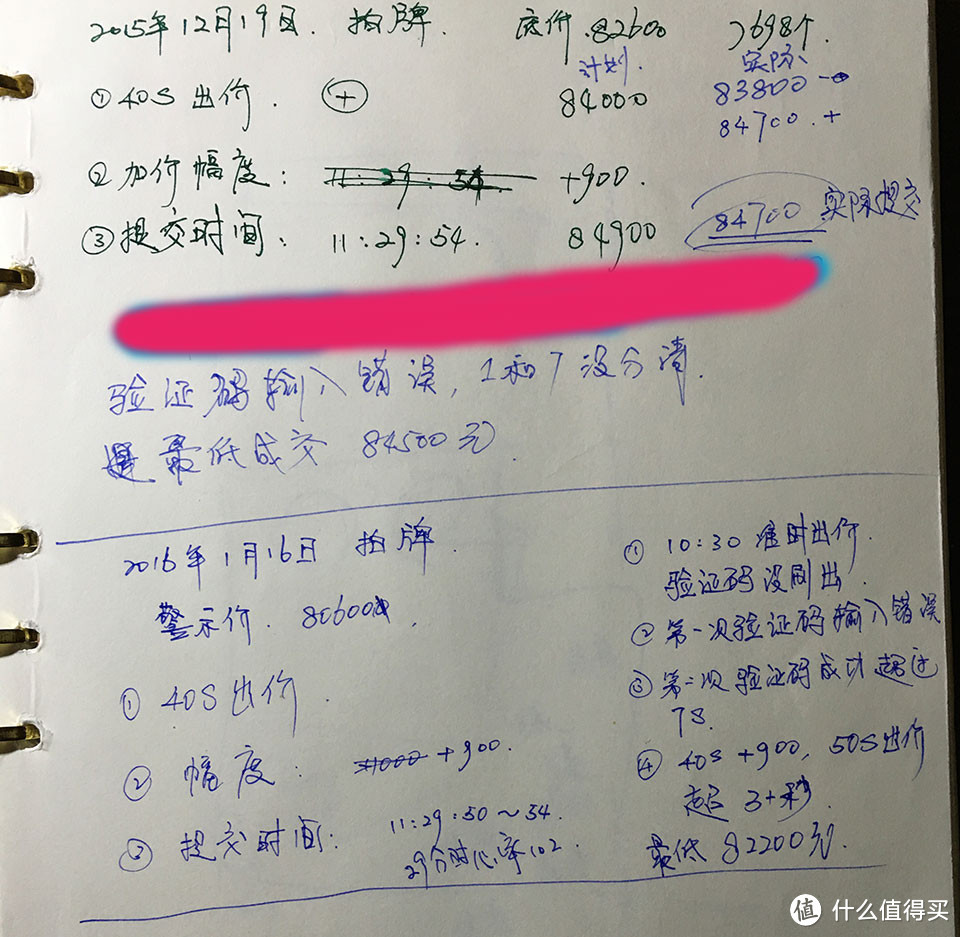 2015年12月19日. 拍牌. 底价.82600 7698个.
计划. 实际、
① 40S 出价. + 84000 83800
84700. +
② 加价幅度: 11:29:54 +900.
③ 提交时间: 11:29:54. 84900 84700 实际提交
验证码输入错误, 1和7没分清.
最低成交 84500元.
2016年1月16日 拍牌.
警示价. 80600
① 40S出价.
② 幅度: +1000 +900.
③ 提交时间: 11:29:50～54.
29分时心率102.
① 10:30准时出价.
验证码没刷出.
② 第一次验证码输入错误
③ 第二次验证码成功超过
7S.
④ 40s +900, 50S出价
超 3+秒.
最低 82200元.
值 什么值得买